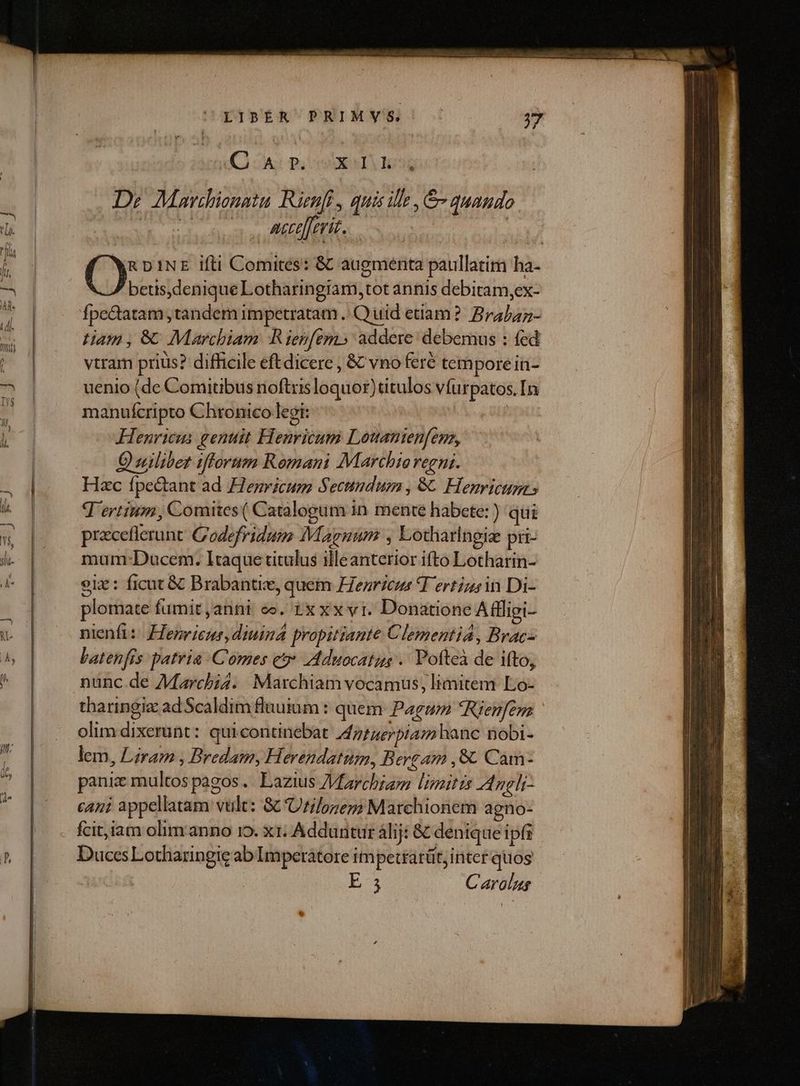 LIBER PRIMVS. 37
CAP. XIII.
De Marchionatu Rienſi, quis ille, & quando
acceſſerit.
ORDINE iſti Comites: & augmenta paullatim ha-
betis, denique Lotharingiam, tot annis debitam, ex-
ſpectatam, tandem impetratam. Quid etiam? Braban-
tiam, & Marchiam Rienſem, addere debemus: ſed
vtram priùs? difficile eſt dicere, & vno ferè tempore in-
uenio (de Comitibus noſtris loquor) titulos vſurpatos. In
manuſcripto Chronico legi:
Henricus genuit Henricum Louanienſem,
Quilibet iſtorum Romani Marchio regni.
Hæc ſpectant ad Henricum Secundum, & Henricum
Tertium, Comites (Catalogum in mente habete:) qui
præceſſerunt Godefridum Magnum, Lotharingiæ pri-
mum Ducem. Itaque titulus ille anterior iſto Lotharin-
giæ: ſicut & Brabantiæ, quem Henricus Tertius in Di-
plomate ſumit, anni ∞. LXXXVI. Donatione Affligi-
nienſi: Henricus, diuinâ propitiante Clementiâ, Brac-
batenſis patriæ Comes & Aduocatus. Poſteà de iſto,
nunc de Marchiâ. Marchiam vocamus, limitem Lo-
tharingiæ ad Scaldim fluuium: quem Pagum Rienſem
olim dixerunt: qui continebat Antuerpiam hanc nobi-
lem, Liram, Bredam, Herendatum, Bergam, & Cam-
paniæ multos pagos. Lazius Marchiam limitis Angli-
cani appellatam vult: & Utilonem Marchionem agno-
ſcit, iam olim anno IƆ. XI. Adduntur alij: & denique ipſi
Duces Lotharingię ab Imperatore impetrarūt, inter quos
E 3 Carolus